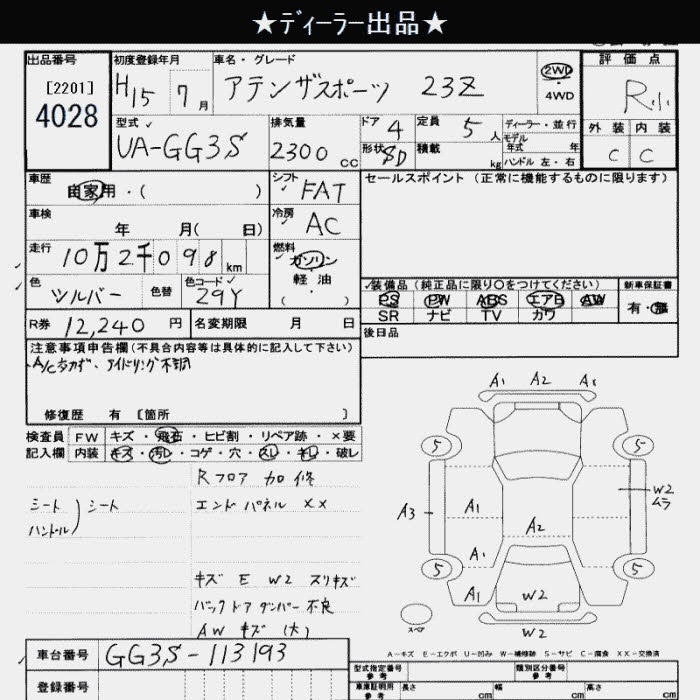 ★ディーラー出品★
出品番号 初度登録年月 車名・グレード 評価点
[2201] H15 7月 アテンザスポーツ 23Z 2WD・4WD R小
4028
型式 排気量 ドア 定員 ディーラー・並行 外装 内装
UA-GG3S 2300cc 4 5人 モデル年式 年 C C
形状 5D 積載 kg ハンドル 左・右
車歴 自家用・( ) シフト FAT セールスポイント(正常に機能するものに限ります)
車検 年 月( 日) 冷房 AC
走行 10万2千098km 燃料 ガソリン
軽油
( ・ )
色 シルバー 色替 色コード 29Y 装備品(純正品に限り○をつけてください) 新車保証書
PS PW ABS エアB AW 有・無
R券 12,240円 名変期限 月 日 SR ナビ TV カワ
注意事項申告欄(不具合内容等は具体的に記入して下さい) 後日品
A/C効カず、アイドリング不調
修復歴 有 [箇所 ]
検査員 FW キズ・飛石・ヒビ割・リペア跡・×要
記入欄 内装 キズ・汚レ・コゲ・穴・スレ・キレ・破レ
Rフロア 加修
シート シート エンドパネル XX
ハンドル
キズ E W2 スリキズ
バックドアダンパー不良
AW キズ (大)
A1 A2 A1
5 5
A3 A1 A2 W2 ムラ
A1
5 5
A1 W2
スペア W2
A-キズ E-エクボ U-凹み W-補修跡 S-サビ C-腐食 XX-交換済
車台番号 GG3S-113193
型式指定番号 参考 類別区分番号 参考
登録番号 車庫証明用 参考 長さ cm 幅 cm 高さ cm